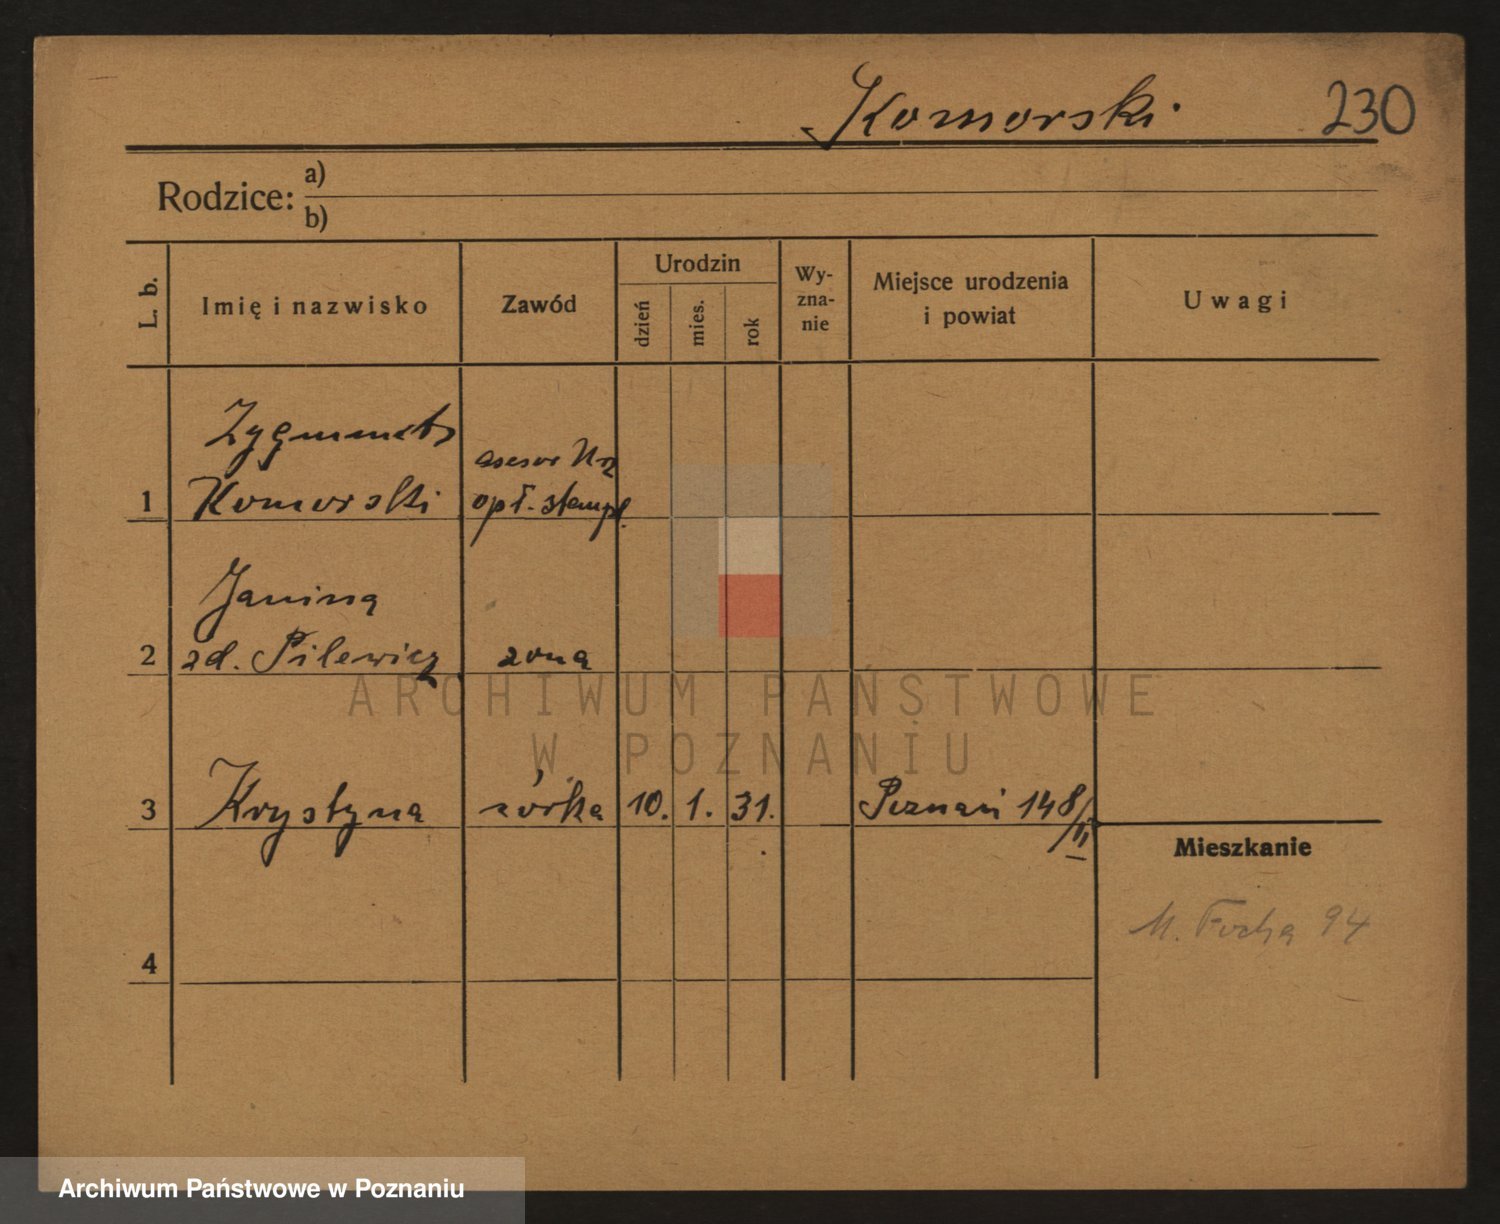 Komorski 230
Rodzice: a)
b)
L. b. Imię i nazwisko Zawód Urodzin dzień mies. rok Wy-zna-nie Miejsce urodzenia i powiat Uwagi
Zygmunt asesor Urz
1 Komorski opł. stempl.
Janina
2 zd. Pilewicz żona
3 Krystyna córka 10. 1. 31. Poznań 148/II
Mieszkanie
M. Focha 94
4
ARCHIWUM PAŃSTWOWE
W POZNANIU
Archiwum Państwowe w Poznaniu